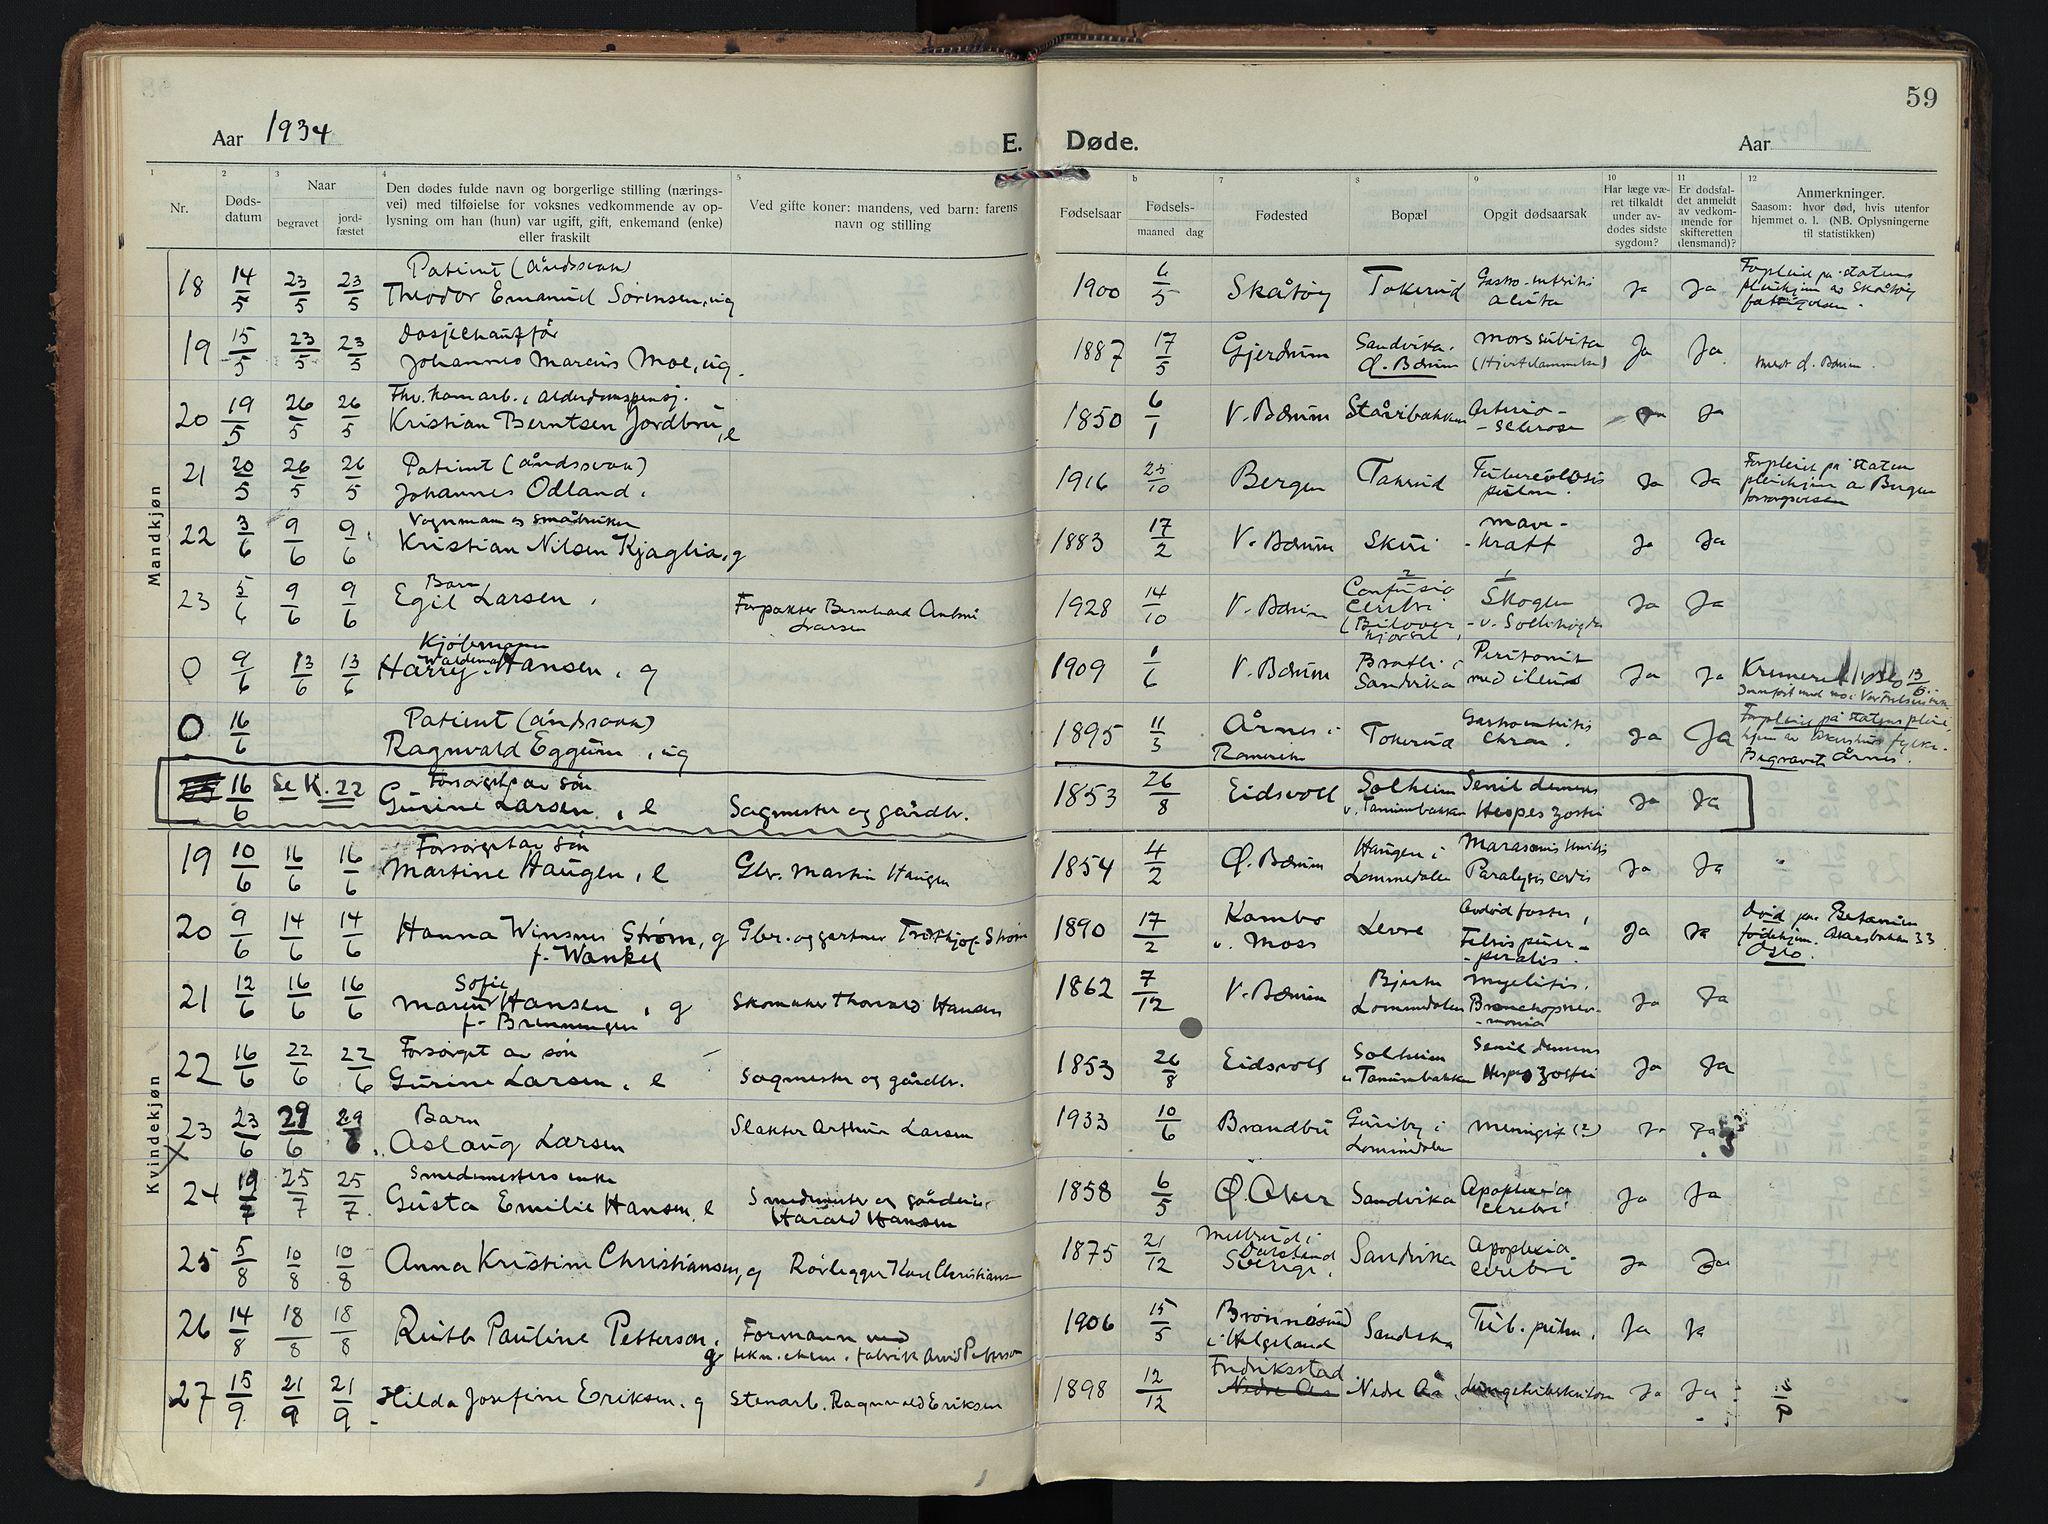 59
Aar 1934
E. Døde.
Aar
1 2 3 4 5 6 7 8 9 10 11 12
Nr.
Døds-
datum
Naar
begravet
jord-
fæstet
Den dødes fulde navn og borgerlige stilling (nærings-
vei) med tilføielse for voksnes vedkommende av op-
lysning om han (hun) var ugift, gift, enkemand (enke)
eller fraskilt
Ved gifte koner: mandens, ved barn: farens
navn og stilling
Fødselsaar
Fødsels-
maaned dag
Fødested
Bopæl
Opgit dødsaarsak
Har læge væ-
ret tilkaldt
under av-
dødes sidste
sygdom?
Er dødsfal-
det anmeldt
av vedkom-
mende for
skifteretten
densmand)?
Anmerkninger.
Saasom: hvor død, hvis utenfor
hjemmet o. l. (NB. Oplysningerne
til statistikken)
Mandkjøn
Patient (åndssvak)
18 14/5 23/5 23/5 Theodor Emanuel Sørensen, ug 1900 6/5 Skåtøy Tokerud Gastro-enteritis acuta Ja Ja Forpleiet på statens pleiehjem av Skåtøy
19 15/5 23/5 23/5 Johannes Marcus Moe, ug. 1887 17/5 Gjerdrum Sandvika. Ø. Bærum Mors subita (Hjertelammelse) Ja Ja
Alderdomspensj.
20 19/5 26/5 26/5 Kristian Berntsen Jordbru, e 1850 6/1 V. Bærum Ståvibakken Arterio-sclerose Ja
Patient (åndssvak)
21 20/5 26/5 26/5 Johannes Odland. 1916 23/10 Bergen Tokerud Tuberculosis pulm. Ja Ja Forpleiet på statens pleiehjem av Bergen forsorgsvesen
Vognmann og småbruker
22 3/6 9/6 9/6 Kristian Nilsen Kjaglia, g 1883 17/2 V. Bærum Skui mave-kræft Ja Ja
Barn
23 5/6 9/6 9/6 Egil Larsen. Forpakter Bernhard Larsen 1928 14/10 V. Bærum Confusio cerebri (Biloverkjørsel) Skogen v. Sollihøgda Ja Ja
Kjøbmann
0 9/6 13/6 13/6 Harry Waldemar Hansen, g 1909 1/6 V. Bærum Bratli i Sandvika Peritonit med ileus Ja Ja 13/6
Patient (åndssvak)
0 16/6 Ragnvald Eggum, ug 1895 11/3 Årnes i Romerike Tokerud Gastroenteritis chron. Ja Ja Forpleiet på statens pleiehjem av Akershus fylke. Begravet Årnes.
Forsørget av søn
16/6 Se K. 22 Gurine Larsen, e Sagmester og gårdbr. 1853 26/8 Eidsvoll Solheim v. Tanumbakken Senil demens Herpes zoster Ja Ja
Kvindekjøn
Forsørget av søn
19 10/6 16/6 16/6 Martine Haugen, e Gbr. Martin Haugen 1854 4/2 Ø. Bærum Haugen i Lommedalen Marasmus senilis Paralysis cordis Ja Ja
20 9/6 14/6 14/6 Hanna Winsnes Strøm, g f. Wankel Gbr. og gartner Strøm 1890 17/2 Kambo v. Moss Levre Febris puerperalis. Ja Ja Død på Betanien fødehjem. 33 Oslo.
21 12/6 16/6 16/6 Maren Sofie Hansen, g f. Brenningen Skomaker Thorvald Hansen 1862 7/12 V. Bærum Bjerke Lommedalen Myelitis. Bronchopneumonia Ja Ja
Forsørget av søn
22 16/6 22/6 22/6 Gurine Larsen, e Sagmester og gårdbr. 1853 26/8 Eidsvoll Solheim v. Tanumbakken Senil demens Herpes zoster Ja Ja
Barn
23 23/6 29/6 29/6 Aslaug Larsen Slakter Arthur Larsen 1933 10/6 Brandbu Guriby i Lommedalen Meningit (?) Ja Ja
Smedmesters enke
24 19/7 25/7 25/7 Gusta Emilie Hansen, e Smedmester og gårdeier Harald Hansen 1858 6/5 Ø. Aker Sandvika Apoplexia cerebri Ja Ja
25 5/8 10/8 10/8 Anna Kristine Christiansen, g Rørlegger Karl Christiansen 1875 21/12 Dalsland Sverige. Sandvika Apoplexia cerebri Ja Ja
26 14/8 18/8 18/8 Ruth Pauline Petterson, g Formann ved tekn. chem. fabrik Arvid Petterson 1906 15/5 Brønnøsund i Helgeland Sandvika Tub. pulm. Ja Ja
27 15/9 21/9 21/9 Hilda Josefine Eriksen, g Stenarb. Ragnvald Eriksen 1898 12/12 Fredriksstad Nedre Ås Nedre Ås Lungetuberkulose Ja Ja